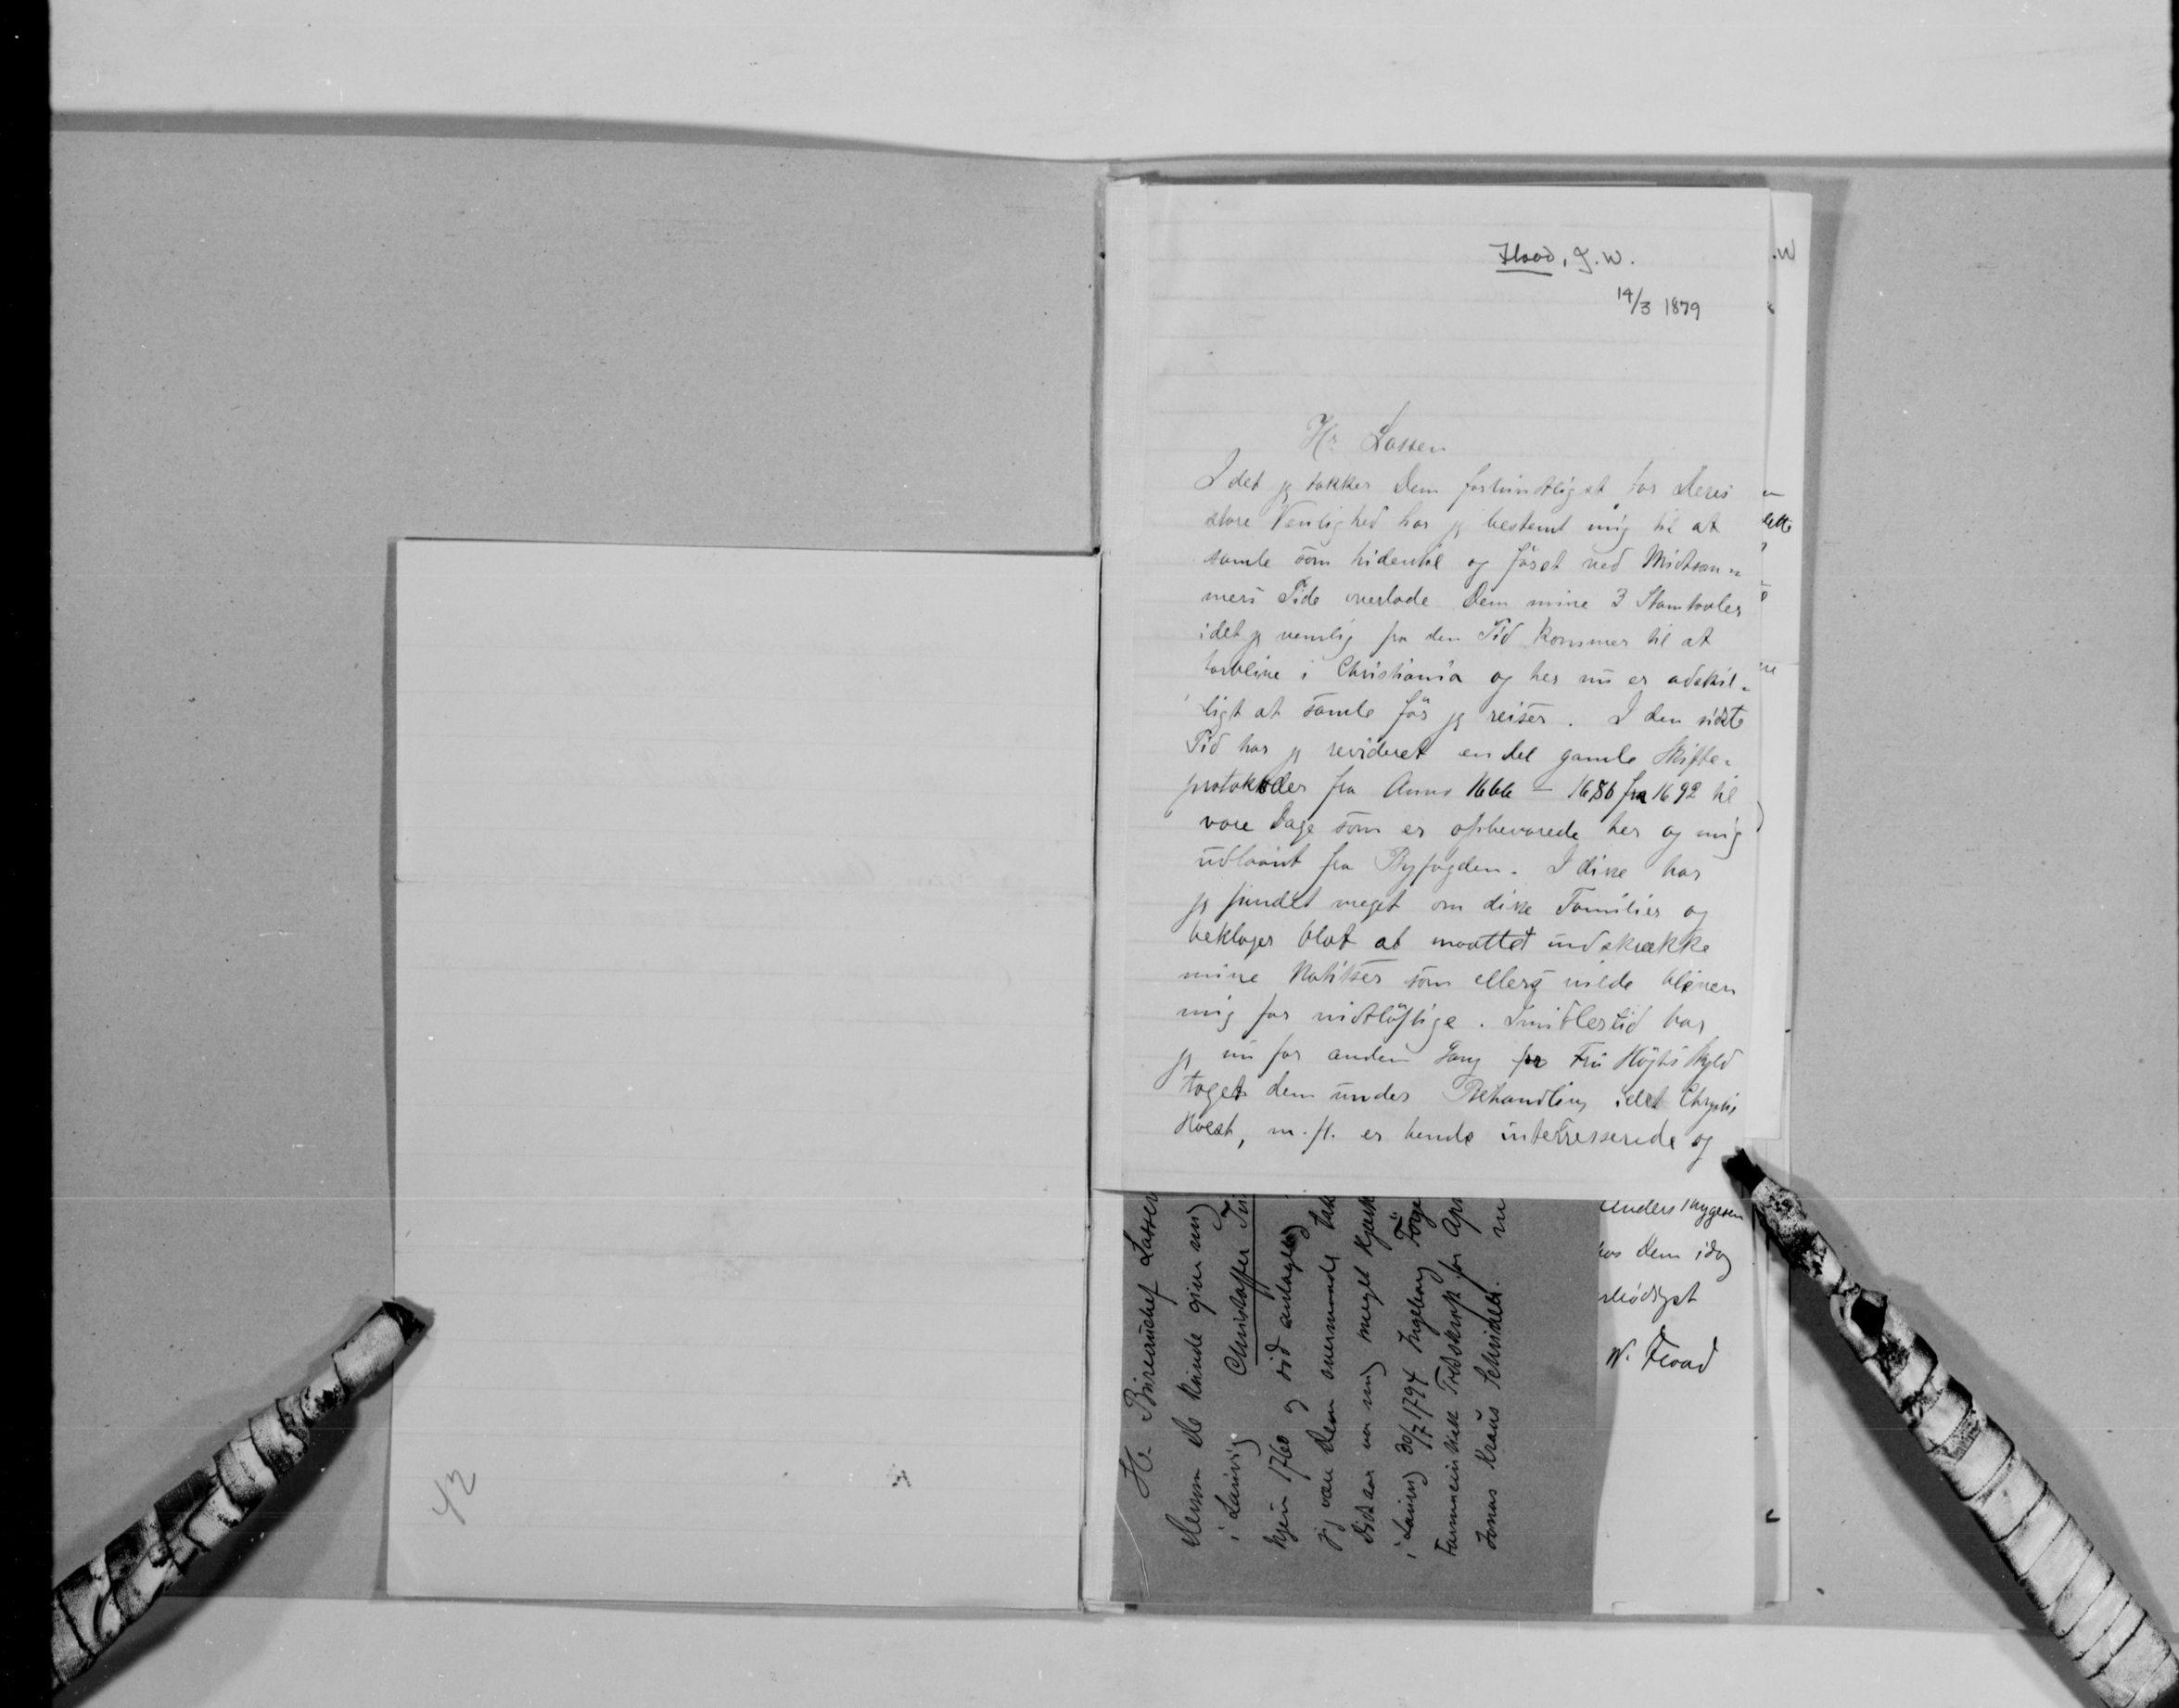 Flood, J. W.
14/3 1879
Hr. Lassen
I det jg takker Dem forbindtligst for Deres
store Venlighed har jg bestemt mig til at
samle som hidentil og først ved Midtsom=
mers Tide overlade Dem mine 3 Stamtavler
idet jg nemlig fra den Tid kommer til at
forblive i Christiania og her nu er adskil=
ligt at samle før jg reiser. I den sidste
Tid har jg revideret en del gamle Skifte=
protokoller fra Anno 1666 - 1686 fra 1692 til
vore Dage som er opbevarede her og mig
udlaant fra Byfogden. I disse har
jg fundet meget om disse Familier og
beklager blot at maattet indskrække
mine Notitser som ellers vilde bleven
mig for vidtløftige. Imidlertid har
jg nu for anden Gang for Fru Høyts Skyld
taget dem under Behandling idet
Hoest, m. fl. er hends interresserede og
Hr. Bureauchef Lassen
Dersom De kunde give mig
i Laurvig Christoffer
1760 og
jg være Dem overmaade
mig meget
i Laurvig 30/7 1794 Ingeborg
for
Jonas Kraus
Anders
hos Dem idag
W. Flood
42